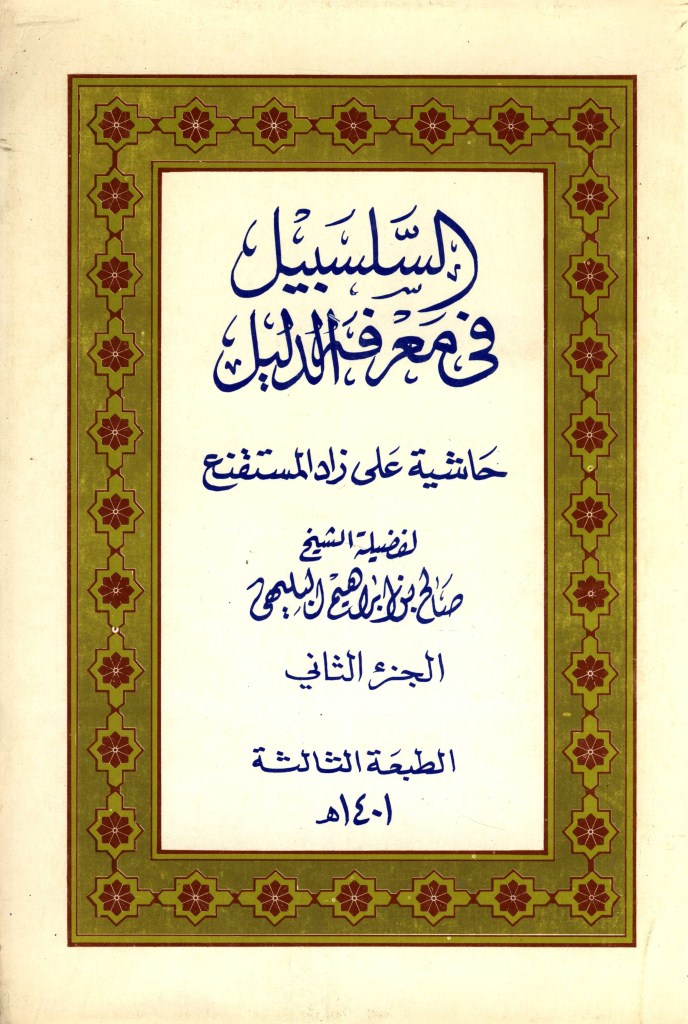 السَّلسَبيل
في مَعَرفة الدليل
حَاشية عَلى زاد المستقنع
لفضيلة الشيخ
صَالح بن ابراهيم البليهي
الجزء الثاني
الطبعَة الثالثة
١٤٠١هـ